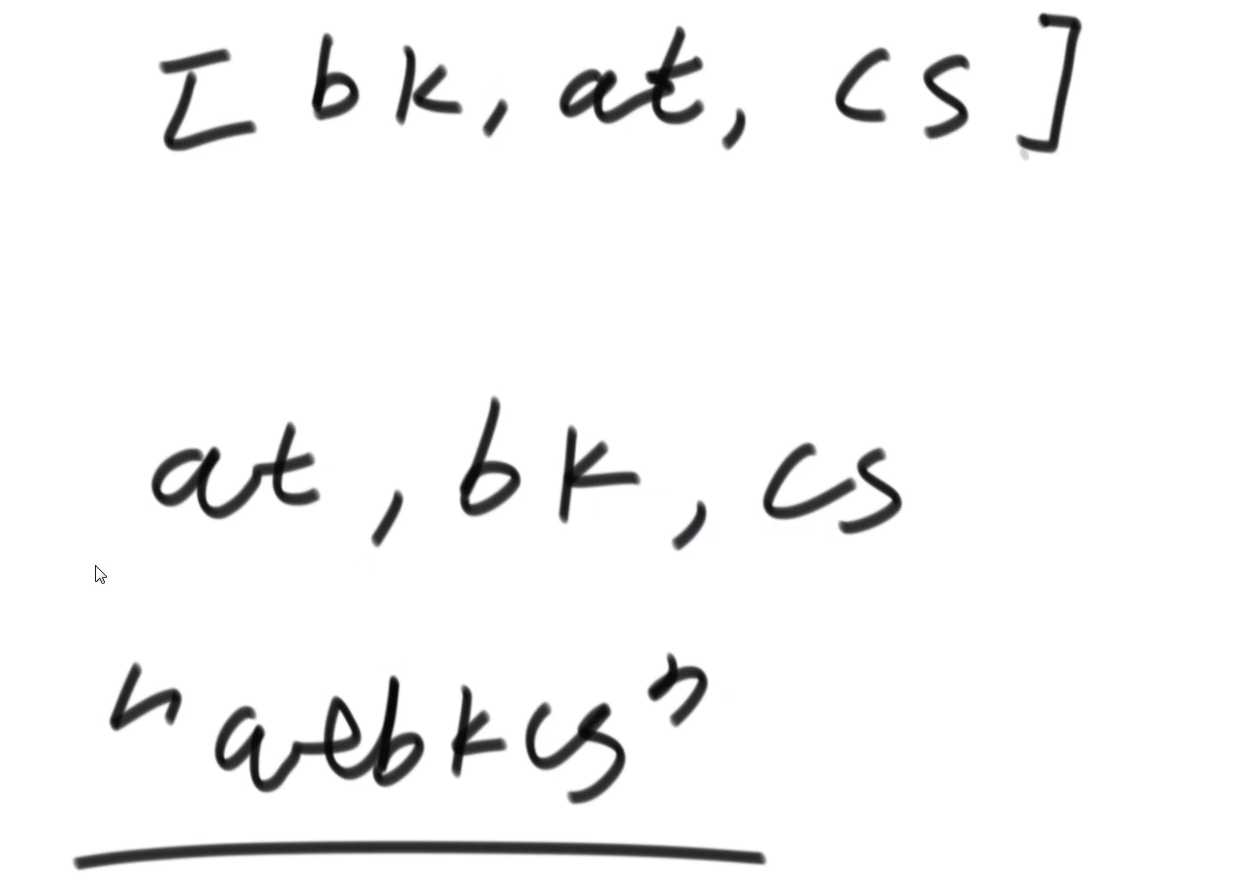 [ bk, at, cs ]
at, bk, cs
"aebkcs"